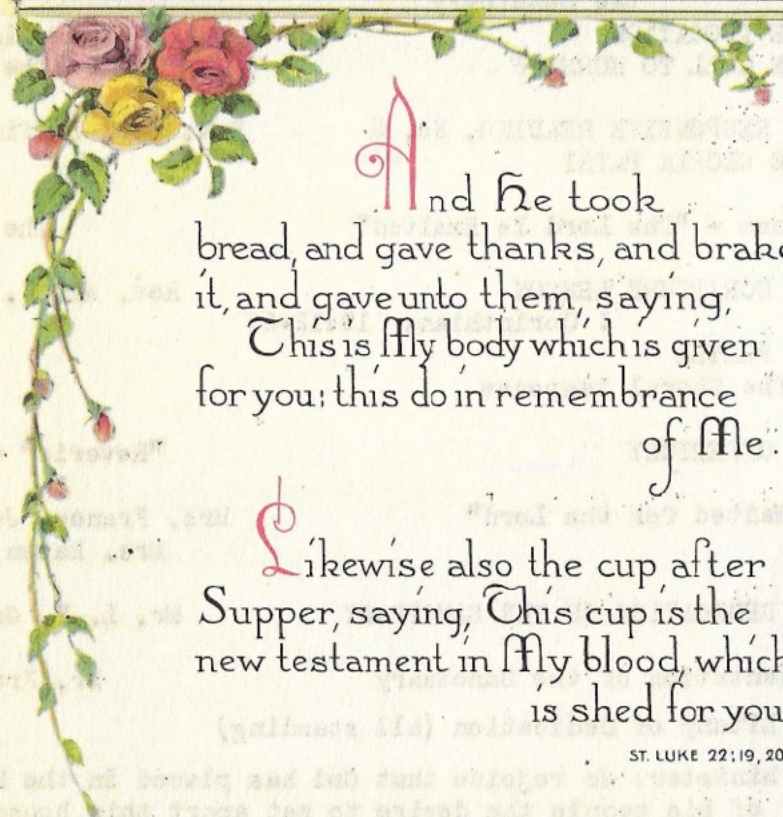 And He took
bread, and gave thanks, and brake
it, and gave unto them, saying,
This is My body which is given
for you: this do in remembrance
of Me
Likewise also the cup after
Supper, saying, This cup is the
new testament in My blood, which
is shed for you
ST. LUKE 22:19, 20